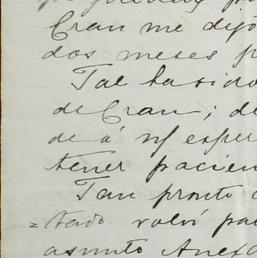 Cran me dijo
dos meses p
Tal ha sido
de Cran; de
de á Vd esper
tener pacien
Tan pronto
=tado volví pa
asunto Anexo